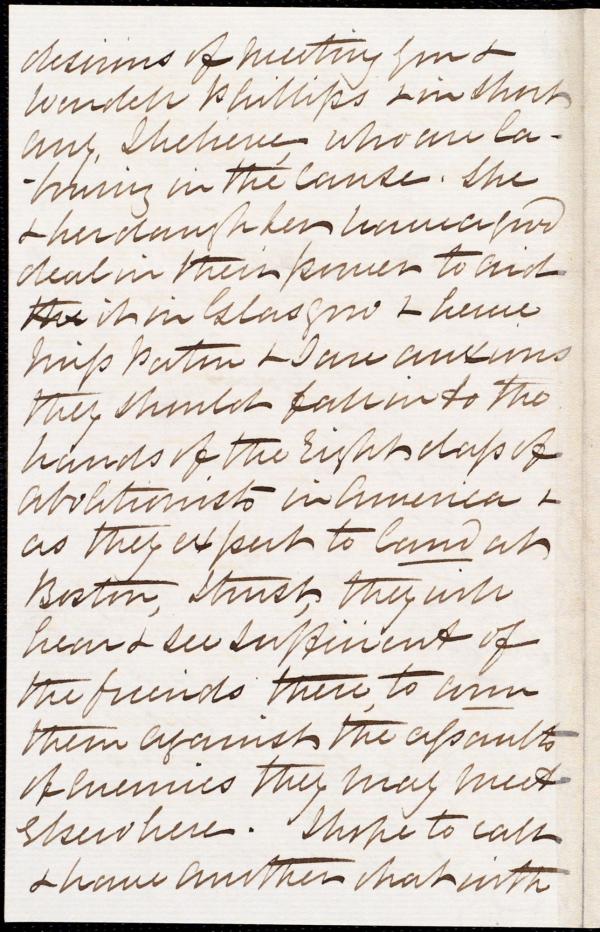 desirous of meeting you &
Wendell Phillips & in short
any, I believe, who are la-
-bouring in the cause. She
& her daughter have a good
deal in their power to aid
the it in Glasgow & hence
Miſs Paton & I are anxious
they should fall into the
hands of the right claſs of
abolitionists in America &
as they expect to land at
Boston, I trust, they will
hear & see sufficient of
the friends there, to arm
them against the aſsaults
of enemies they may meet
elsewhere. I hope to call
& have another chat with